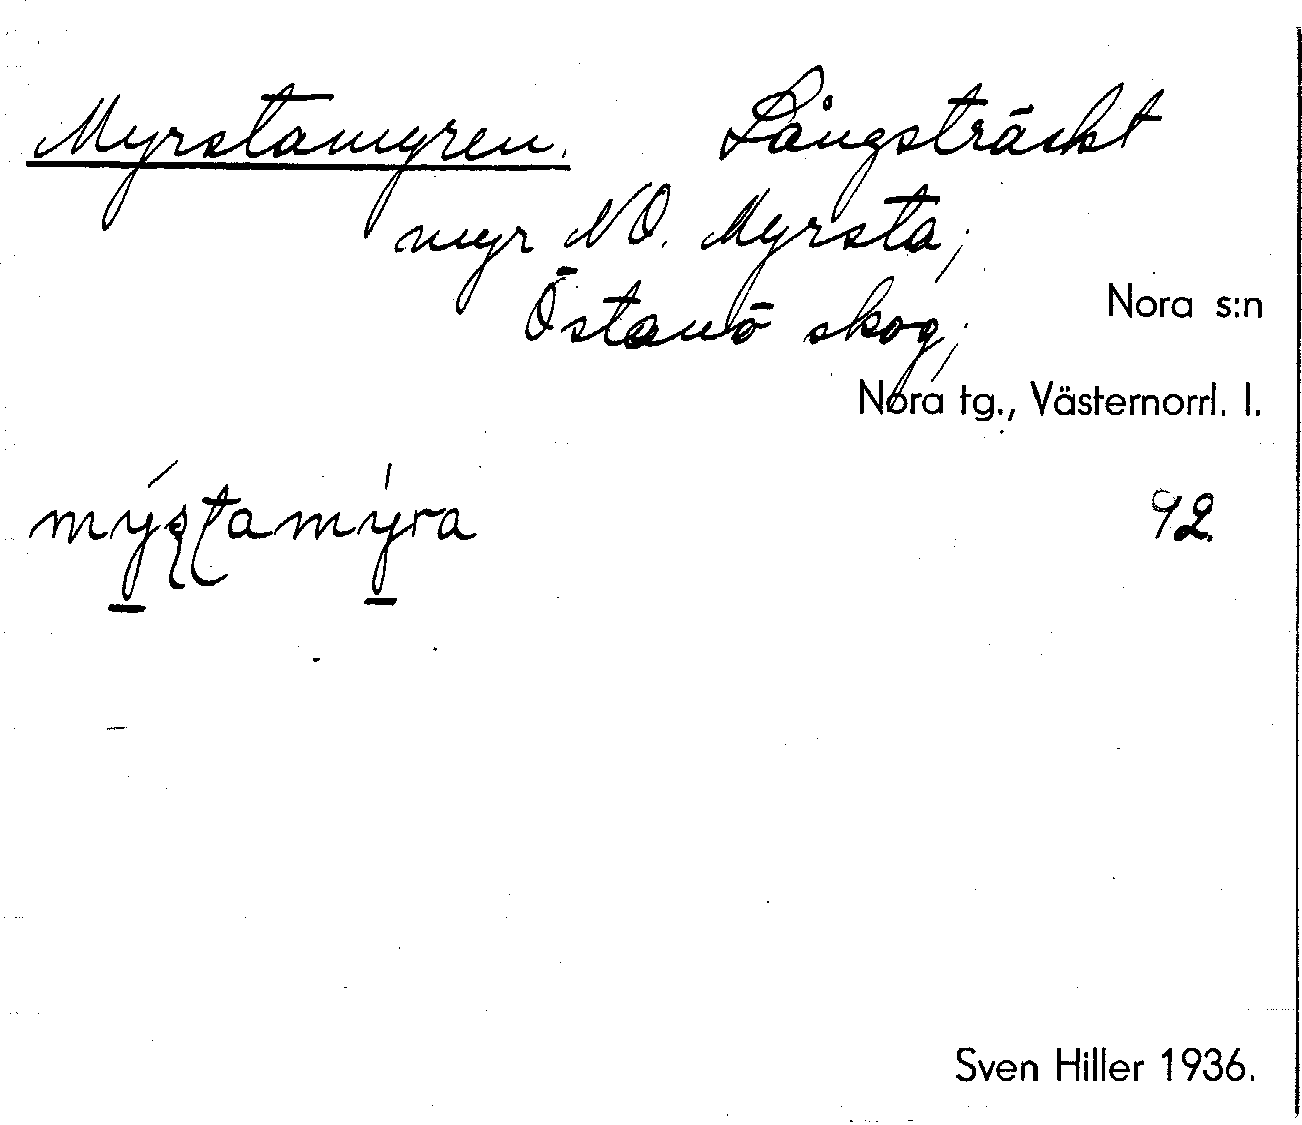 Myrstamyren. Långsträckt
myr NO. Myrsta,
Östanö skog,
Nora s:n
Nora tg., Västernorrl. l.
mýʂʈamýra 92.
Sven Hiller 1936.